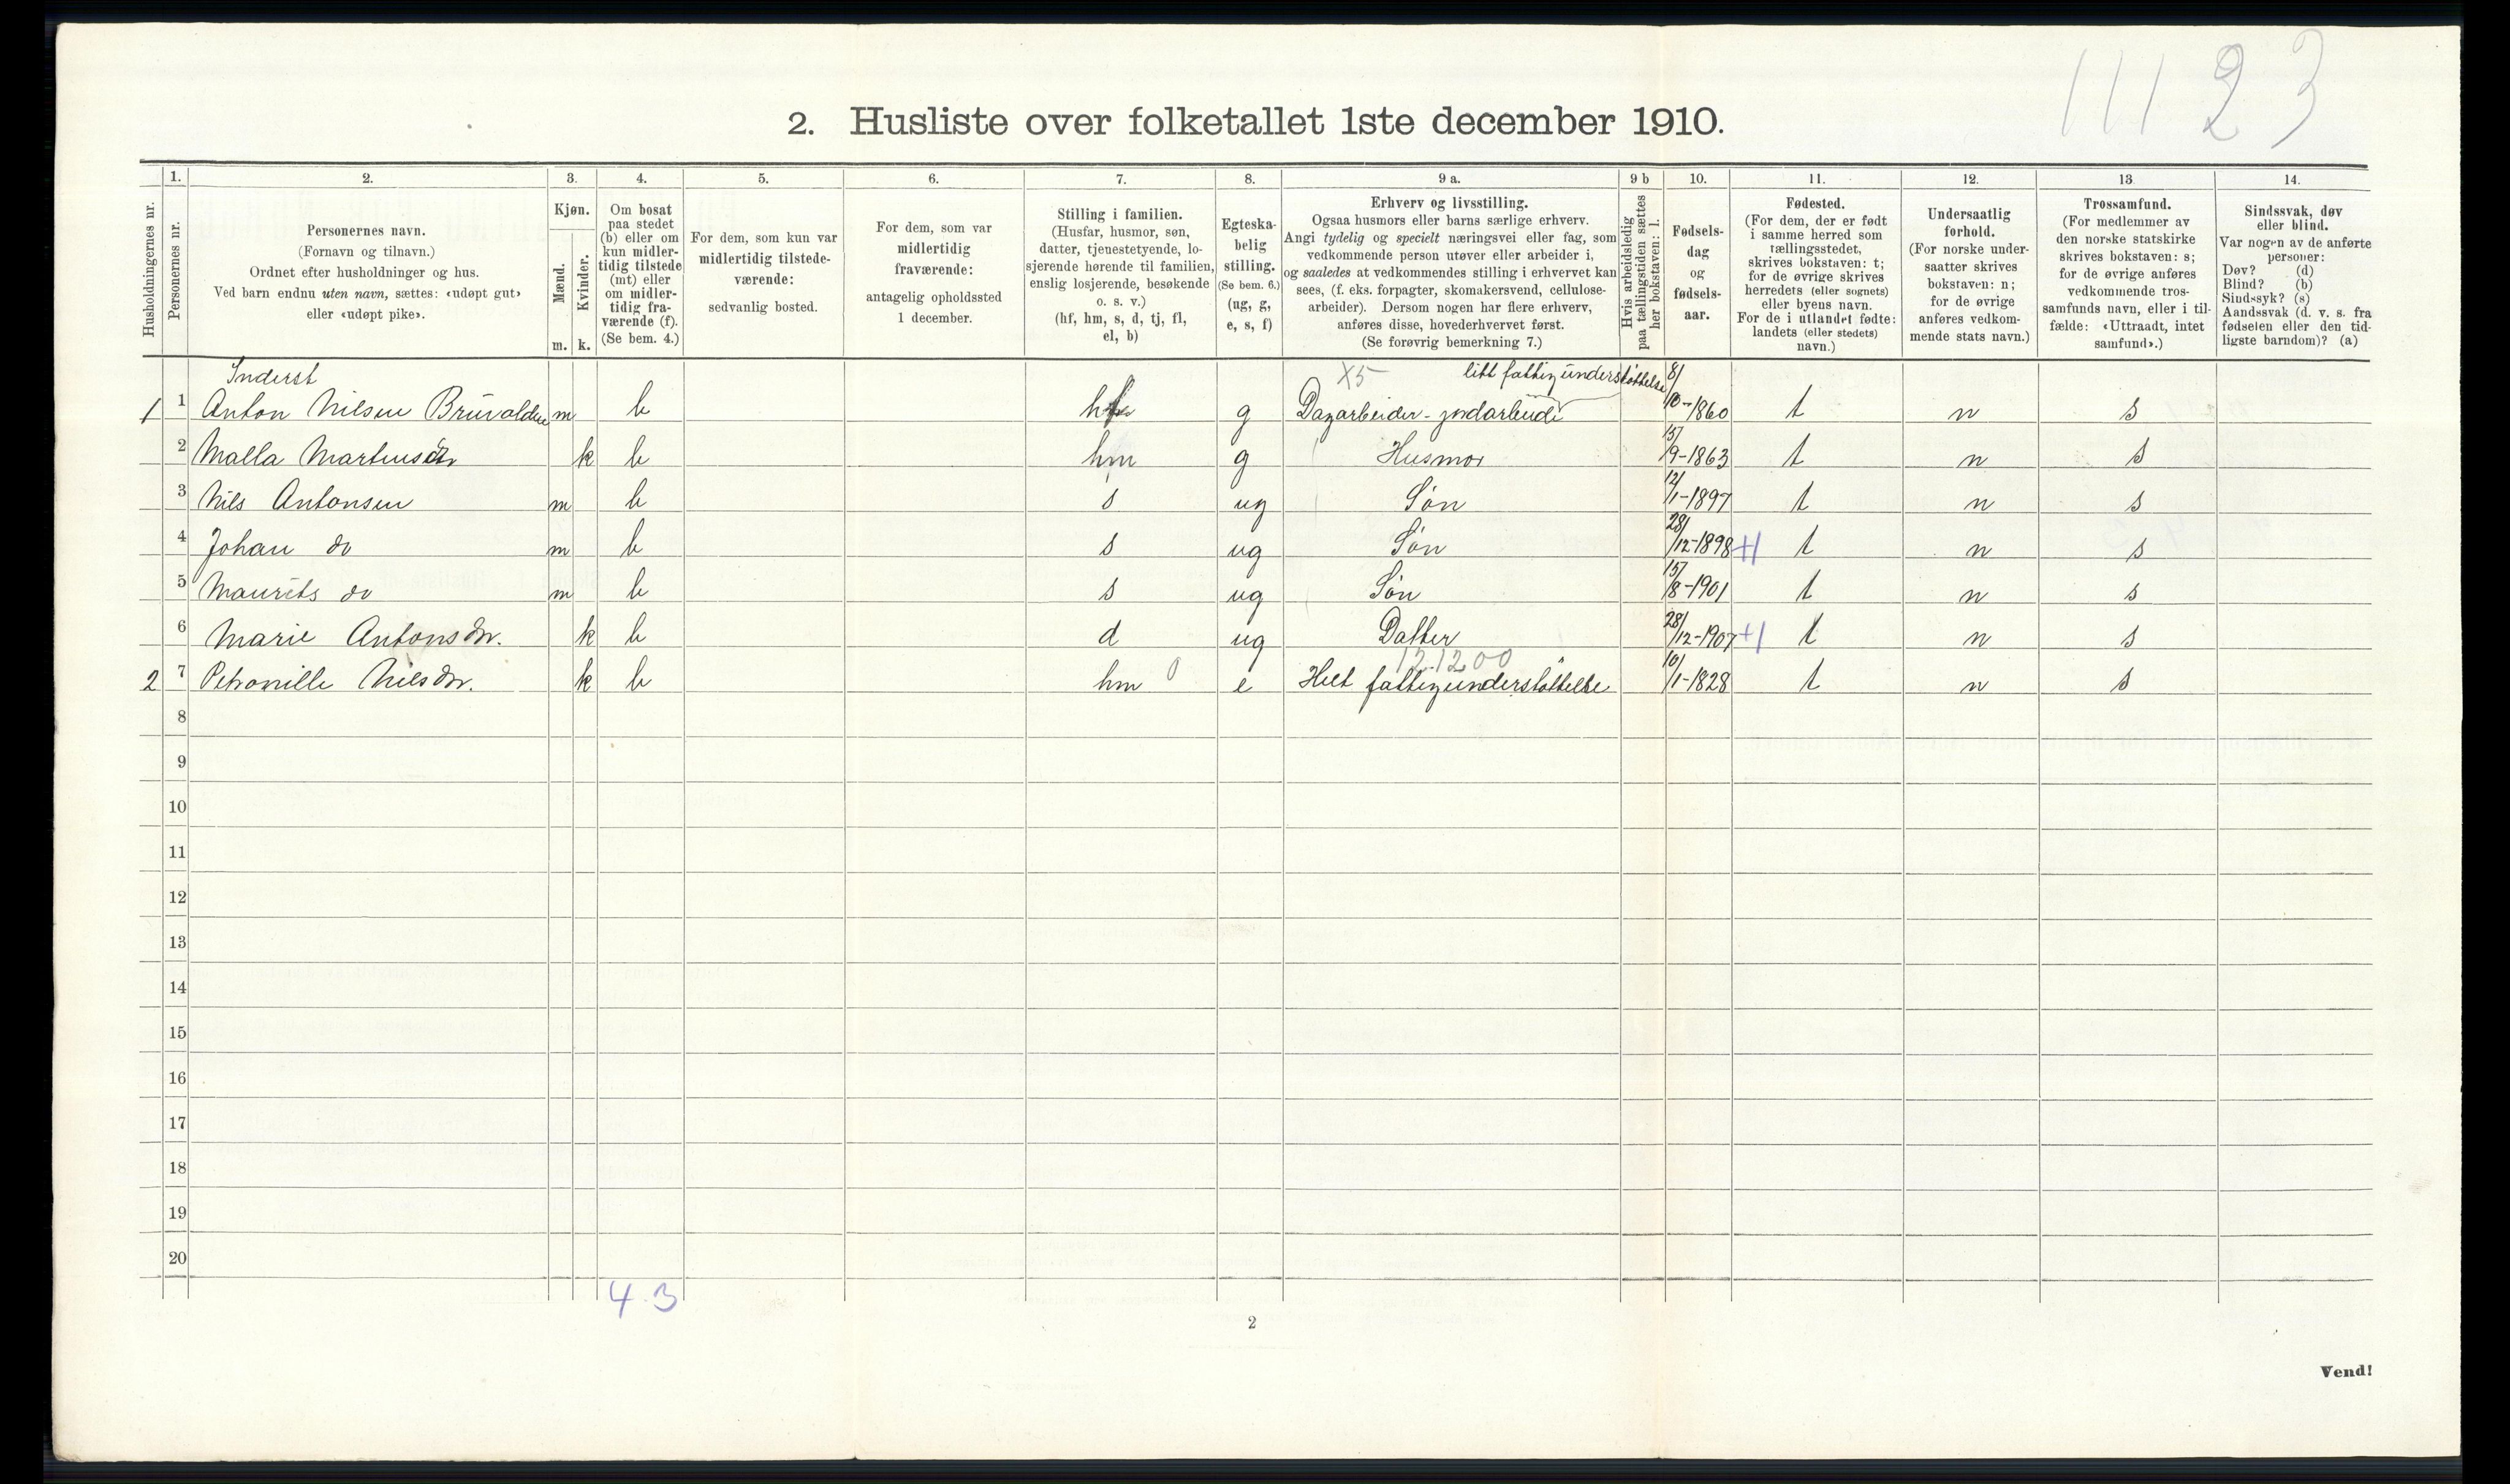 11123
2. Husliste over folketallet 1ste december 1910.
1. 2. 3. 4. 5. 6. 7. 8. 9 a. 9 b 10. 11. 12. 13 14.
Husholdningernes nr.
Personernes nr.
Personernes navn.
(Fornavn og tilnavn.)
Ordnet efter husholdninger og hus.
Ved barn endnu uten navn, sættes: «udøpt gut»
eller «udøpt pike».
Kjøn.
Mænd.
Kvinder.
m. k.
Om bosat
paa stedet
(b) eller om
kun midler-
tidig tilstede
(mt) eller
om midler-
tidig fra-
værende (f).
(Se bem. 4.)
For dem, som kun var
midlertidig tilstede-
værende:
sedvanlig bosted.
For dem, som var
midlertidig
fraværende:
antagelig opholdssted
1 december.
Stilling i familien.
(Husfar, husmor, søn,
datter, tjenestetyende, lo-
sjerende hørende til familien,
enslig losjerende, besøkende
o. s. v.)
(hf, hm, s, d, tj, fl,
el, b)
Egteska-
belig
stilling.
(Se bem. 6.)
(ug, g,
e, s, f)
Erhverv og livsstilling.
Ogsaa husmors eller barns særlige erhverv.
Angi tydelig og specielt næringsvei eller fag, som
vedkommende person utøver eller arbeider i,
og saaledes at vedkommendes stilling i erhvervet kan
sees, (f. eks. forpagter, skomakersvend, cellulose-
arbeider). Dersom nogen har flere erhverv,
anføres disse, hovederhvervet først.
(Se forøvrig bemerkning 7.)
Hvis arbeidsledig
paa tællingstiden sættes
her bokstaven: l.
Fødsels-
dag
og
fødsels-
aar.
Fødested.
(For dem, der er født
i samme herred som
tællingsstedet,
skrives bokstaven: t;
for de øvrige skrives
herredets (eller sognets)
eller byens navn.
For de i utlandet fødte:
landets (eller stedets)
navn.)
Undersaatlig
forhold.
(For norske under-
saatter skrives
bokstaven: n;
for de øvrige
anføres vedkom-
mende stats navn.)
Trossamfund.
(For medlemmer av
den norske statskirke
skrives bokstaven: s;
for de øvrige anføres
vedkommende tros-
samfunds navn, eller i til-
fælde: «Uttraadt, intet
samfund».)
Sindssvak, døv
eller blind.
Var nogen av de anførte
personer:
Døv? (d)
Blind? (b)
Sindssyk? (s)
Aandssvak (d. v. s. fra
fødselen eller den tid-
ligste barndom)? (a)
Inderst X5 litt fattigunderstøttelse
1 1 Anton Nilsen m b g Dagarbeider - 8/10-1860 t n s
2 Malla Martinsdtr k b hm g Husmor 15/9-1863 t n s
3 Nils Antonsen m b s ug Søn 12/1-1897 t n s
4 Johan do m b s ug Søn 28/12-1898 +1 t n s
5 Maurits do m b s ug Søn 15/8-1901 t n s
6 Marie Antonsdtr. k b d ug Datter 28/12-1907 +1 t n s
12.1200
2 7 Petronille Nilsdtr. k b hm 0 e Helt fattigunderstøttelse 10/1-1828 t n s
8
9
10
11
12
13
14
15
16
17
18
19
20
4.3
2
Vend!